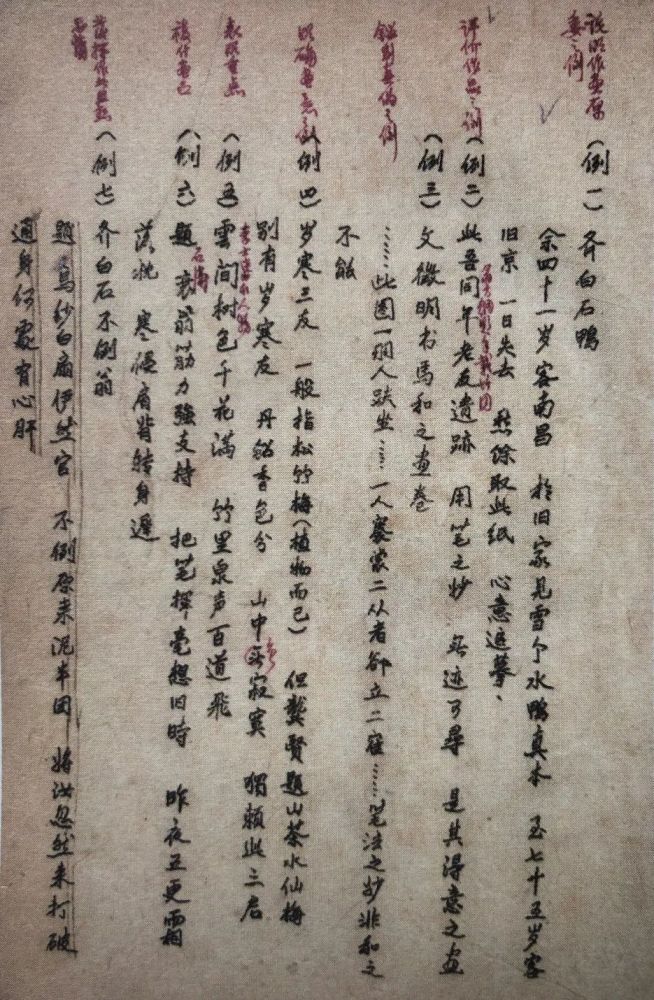 说明作画原
委之例
(例一) 齐白石鸭
余四十一岁客南昌 于旧家见雪个水鸭真本 至七十五岁客
旧京 一日失去 愁余取此纸 心意追摹、
评价作品之例
(例二) 此吾同年老友遗跡 用笔之妙 无迹可寻 是其得意之画
(例三) 文徵明书马和之画卷
鉴别真伪之例
……此图一绸人趺坐……一人褰裳二从者卻立二

……笔法之妙非和之
不能
以确画意之例
(例四) 岁寒三友 一般指松竹梅(植物而已) 但龚贤题山茶水仙梅
别有岁寒友 丹铅香色分 山中无寂寞 独赖此三君
表明画意
(例五) 雲间树色千花满 竹里泉声百道飛
(例六) 题 衰翁筋力強支持 把笔揮毫想旧時 昨夜五更霜
石濤
落枕 寒侵肩背转身遲
(例七) 齐白石不倒翁
题 烏纱白扇伊然官 不倒原来泥半团 将汝忽然来打破
通身何處有心肝